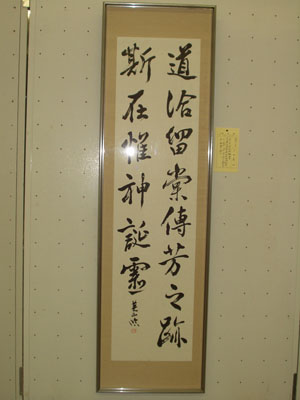 道洽留棠傳芳之跡
斯在惟神誕靈